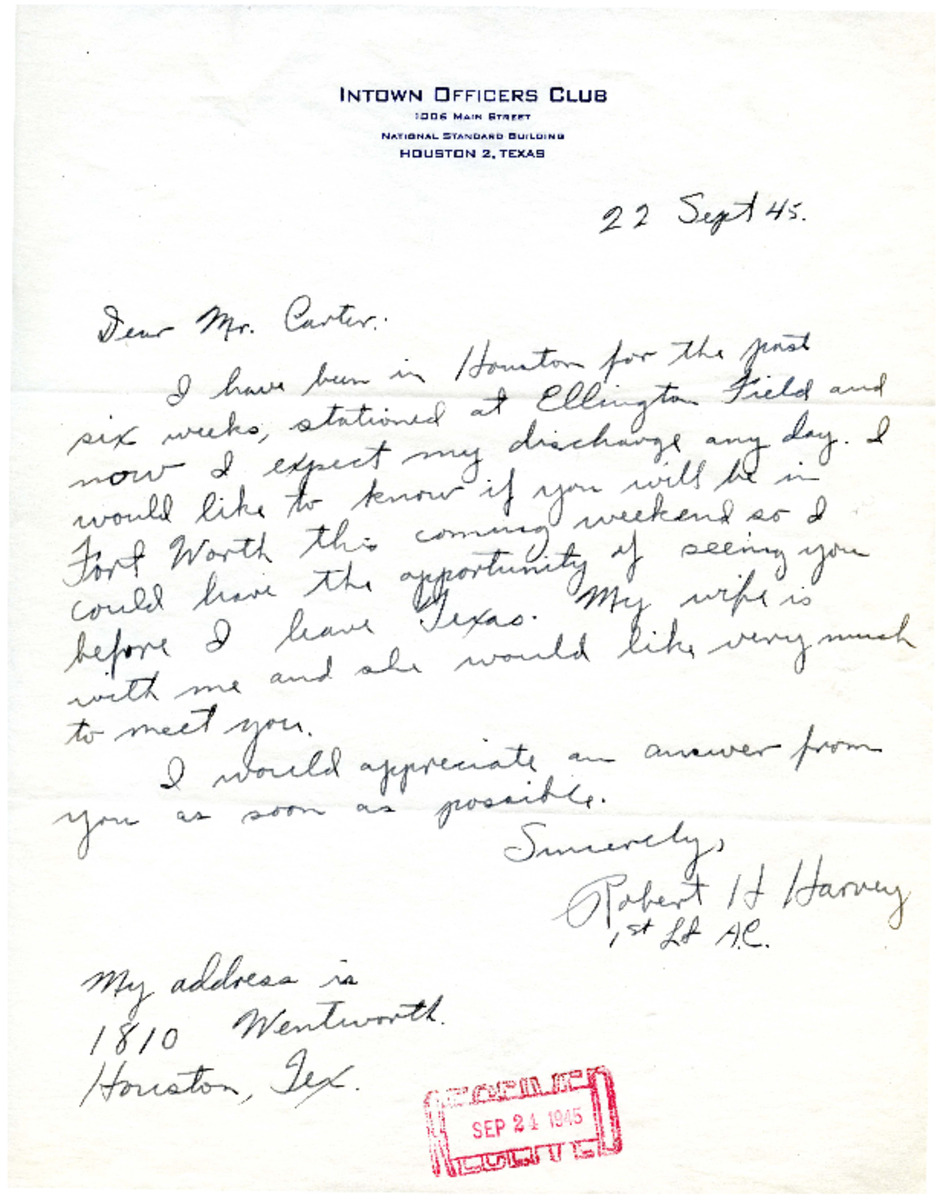 INTOWN OFFICERS CLUB
1006 MAIN STREET
NATIONAL STANDARD BUILDING
HOUSTON 2, TEXAS
22 Sept 45.
Dear Mr. Carter:
I have been in Houston for the past
six weeks, stationed at Ellington Field and
now I expect my discharge any day. I
would like to know if you will be in
Fort Worth this coming weekend so I
could have the opportunity of seeing you
before I leave Texas. My wife is
with me and she would like very much
to meet you.
I would appreciate an answer from
you as soon as possible.
Sincerely,
Robert H Harvey
1st Lt A.C.
My address is
1810 Wentworth.
Houston, Tex.
SEP 24 1945